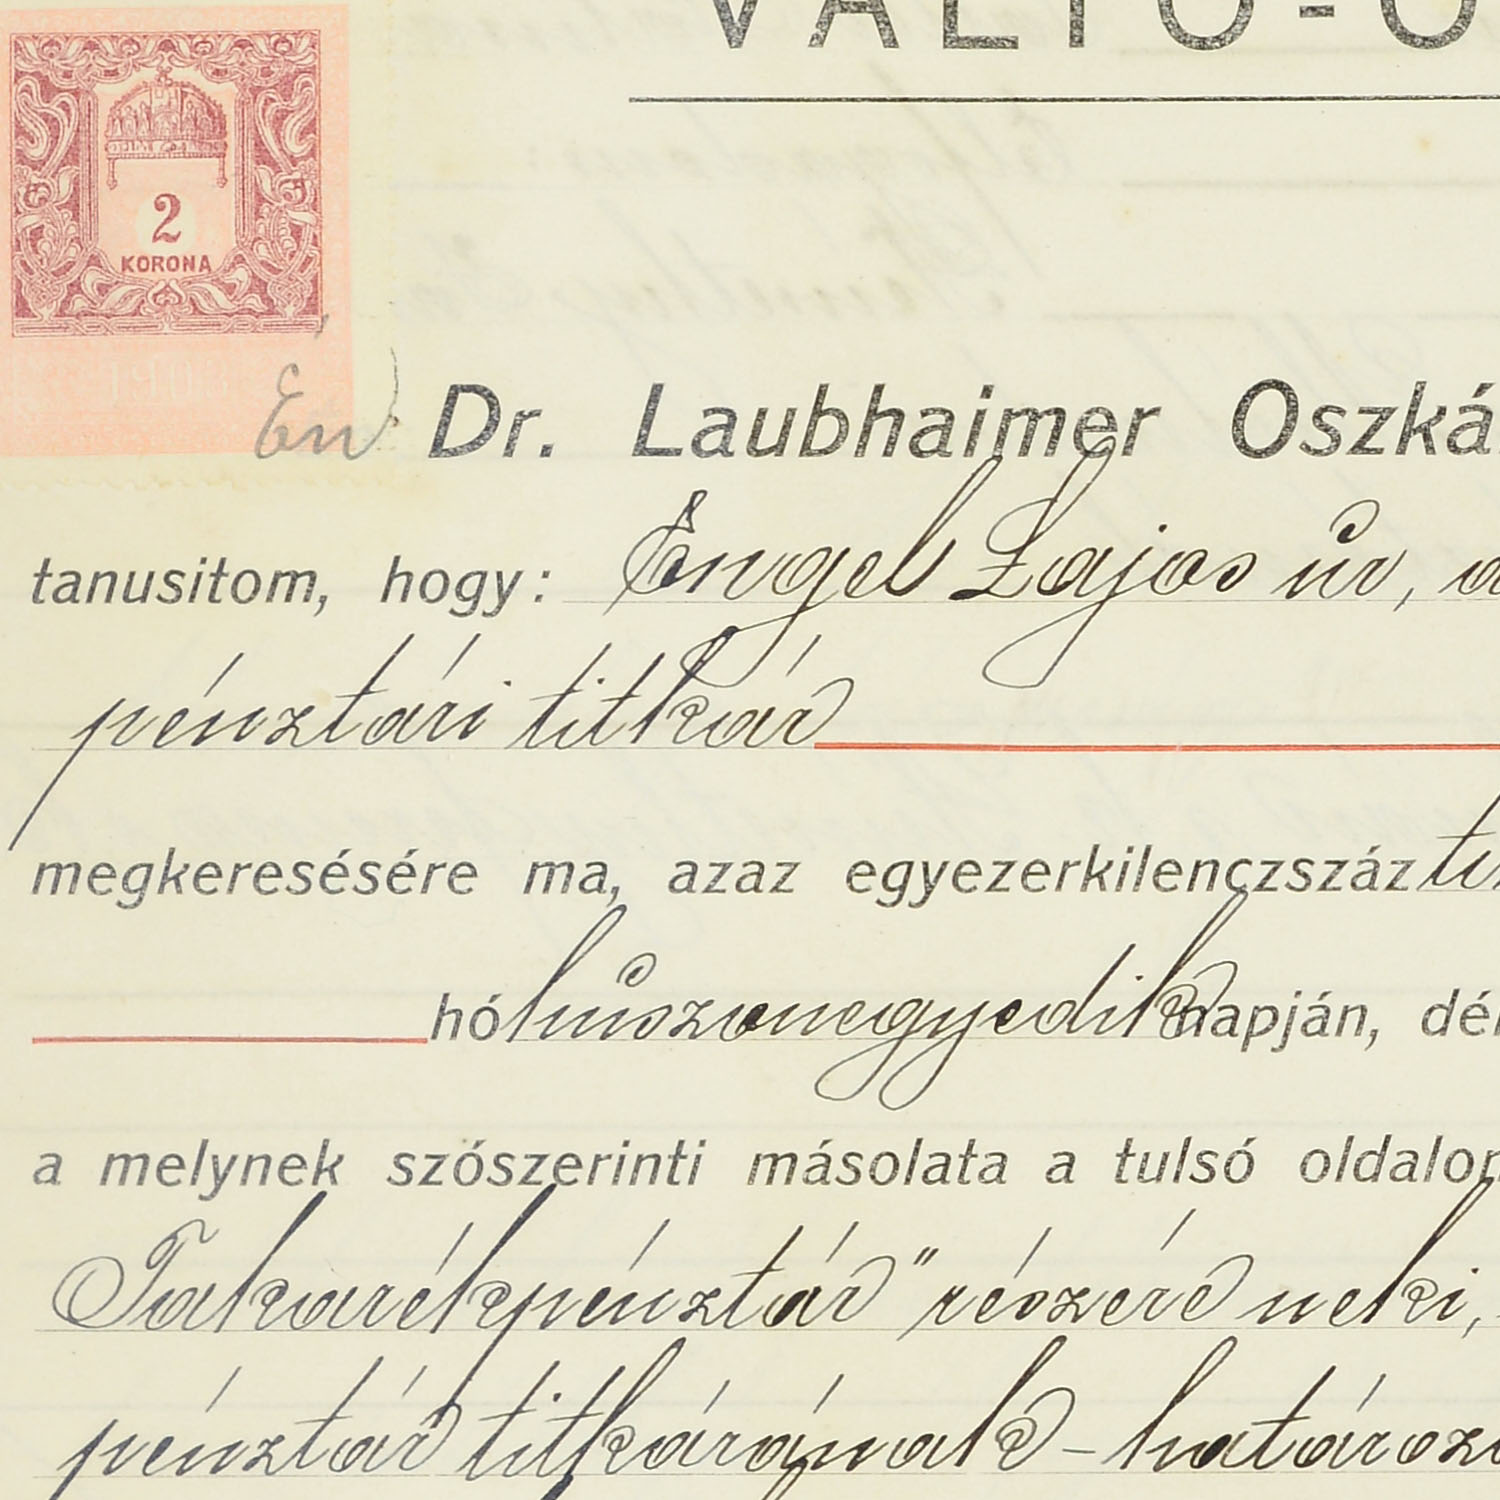 VÁLTÓ-Ó
2
KORONA
Én Dr. Laubhaimer Oszká
tanusitom, hogy: Engel Lajos úr, a
pénztári titkár
megkeresésére ma, azaz egyezerkilenczszáz ti
hó huszonegyedik napján, dél
a melynek szószerinti másolata a tulsó oldalon
Takarékpénztár" részére neki,
pénztár titkárának - határozo